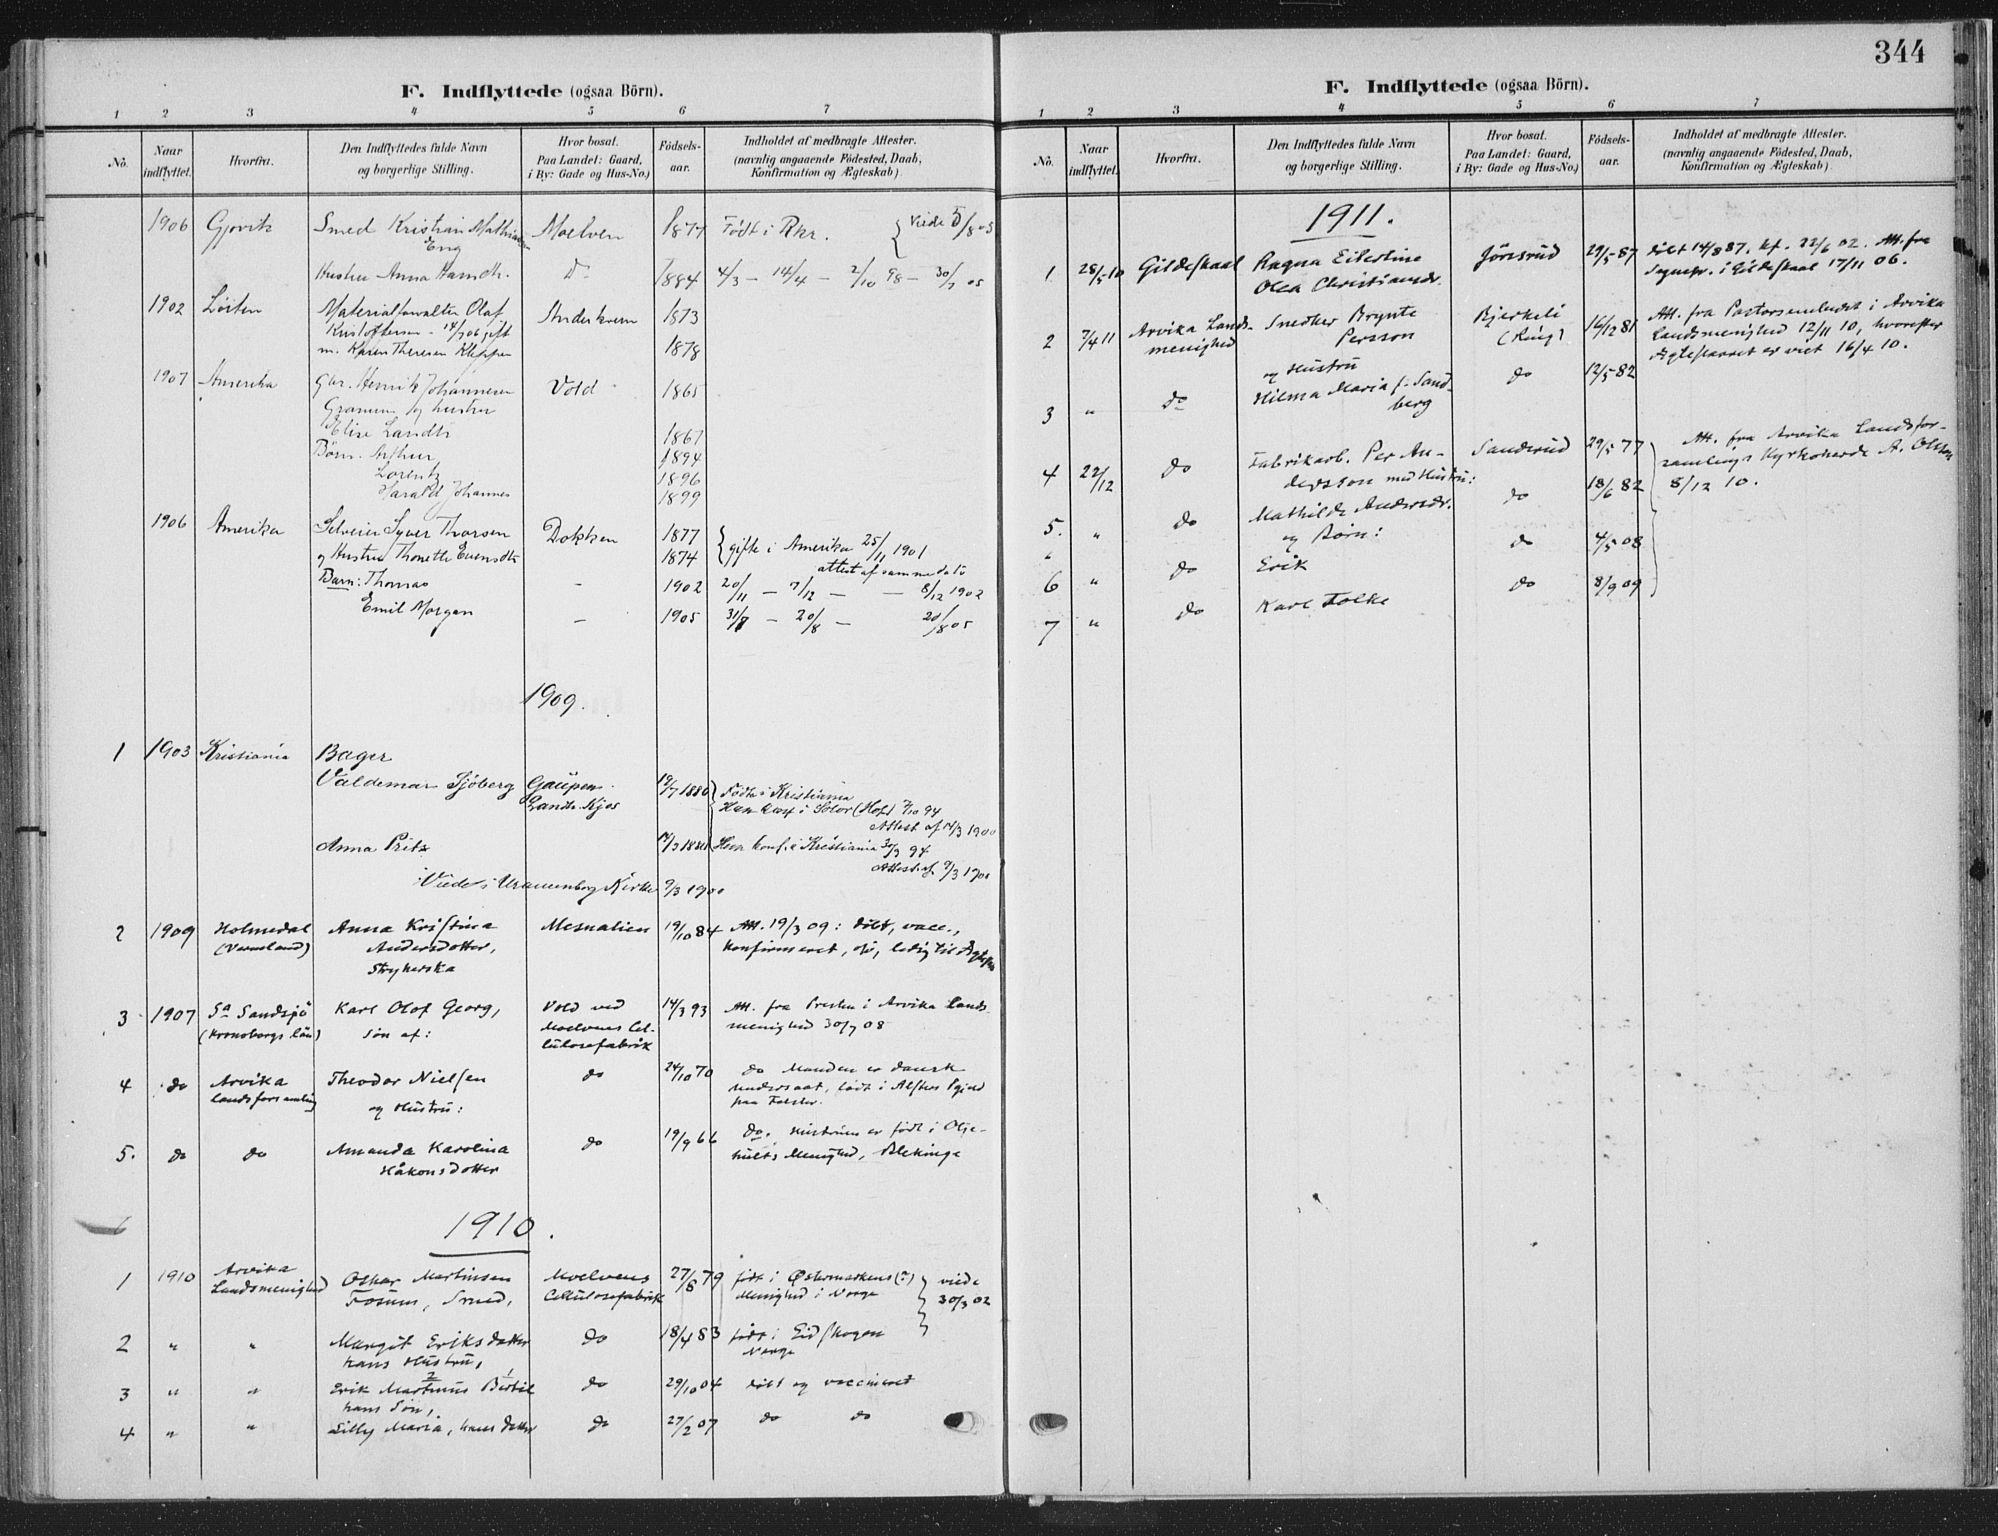 344
F. Indflyttede (ogsaa Börn).
1 2 3 4 5 6 7
No. Naar indflyttet. Hvorfra. Den Indflyttedes fulde Navn og borgerlige Stilling. Hvor bosat. Paa Landet: Gaard, i By: Gade og Hus-No.) Födsels-aar. Indholdet af medbragte Attester. (navnlig angaaende Födested, Daab, Konfirmation og Ægteskab)
1906 Gjøvik Smed Kristian Mathiassen Moelven 1877 Født i Rkr. Viede 5/8 05
Eng
Hustru Anna Hansdt. D- 1884 4/3 - 14/4 - 2/10 98 - 30/7 05
1902 Løiten Materialforvalter Olaf 1873
Kristoffersen - 14/7 06 gift
m. Karen Theresen Kleppen 1878
1907 Amerika Gbr. Henrik Johannesen Vold 1865
og hustru
Elise Larsdtr 1867
Børn: Arthur, 1894
Lorentz 1896
Harald Johannes 1899
1906 Amerika Selveier Syver Thorsen Dokken 1877
og Hustru Thonette Evensdtr 1874 gifte i Amerika 25/11 1901
attest af samme dato
Barn: Thomas - 1902 20/11 - 7/12 - - 8/12 1902
Emil Morgan - 1905 31/7 - 20/8 - 20/8 05
1909.
1 1903 Kristiania Bager
Valdemar Sjöberg Gaupen 19/7 1880 Født i Kristiania
Han konf i Solør (Hof) 2/10 94
Attest af 14/3 1900
Anna Pritz Hun konf. i Kristiania 30/9 94
Attest af 9/3 1900
Viede i Uranienborg Kirke 9/3 1900
2 1909 Holmedal Anna Kristina Mesnalien 19/10 84 Att. 19/3 09: døbt, vacc.,
(Vermland) Andersdotter, konfirmeret, og ledig til Ægtesk
Strykerska
3 1907 Sa Sandsjö Karl Olof Georg, Vold ved 14/3 93 Att. fra Presten i Arvika Lands
(Kronobergs län) Søn af: Moelvens Cel- menighed 30/7 08
lulosefabrik
4 do Arvika Theodor Nielsen do 24/10 70 do Manden er dansk
landsforsamling og Hustru: undersaat, født i Alslev Sogn
paa Falster.
5. do do Amanda Karolina do 19/9 66 do. Hustruen er født i Olje-
Håkonsdotter hults Menighed, Blekinge
1910.
1 1910 Arvika Oskar Martinsen Moelvens 27/8 79 født i Østermarkens(?) viede
Landsmenighed Fosum, Smed, Cellulosefabrik Menighed i Norge 30/3 02
2 " " Margit Eriksdatter do 18/4 83 født i Eidskogen
hans Hustru, Norge
3 " " Erik Martinus Bertil do 29/10 04 døbt og vaccineret
hans Søn,
4 " " Lilly Maria, hans datter do 27/2 07 do do
F. Indflyttede (ogsaa Börn).
1 2 3 4 5 6 7
No. Naar indflyttet. Hvorfra. Den Indflyttedes fulde Navn og borgerlige Stilling. Hvor bosat. Paa Landet: Gaard, i By: Gade og Hus-No.) Födsels-aar. Indholdet af medbragte Attester. (navnlig angaaende Födested, Daab, Konfirmation og Ægteskab)
1911.
1 28/5 10 Gildeskaal Ragna Eilertine Jønsrud 29/5 87 døbt 14/8 87. kf. 22/6 02. Att. fra
Olea Christiansdr. Sognepr. i Gildeskaal 17/11 06.
2 7/4 11 Arvika Lands- Snedker Brynte Bjerkeli 16/12 81 Att. fra Pastorsembedet i Arvika
menighed Persson (Ring) Landsmenighed 12/11 10, hvorefter
Ægteparret er viet 16/4 10.
og Hustru
3 " do Hilma Maria f. Sand- do 12/5 82
berg
4 22/12 do Fabrikarb. Per An- Sanderud 29/5 77 Att. fra Arvika Landsfor-
dersson med Hustru: samlings Kyrkoherde A. Olsson
8/12 10.
5. " do Mathilde Andersdr. do 18/6 82
og Børn:
6 " do Erik do 4/5 08
7 " do Karl Folke do 8/9 09